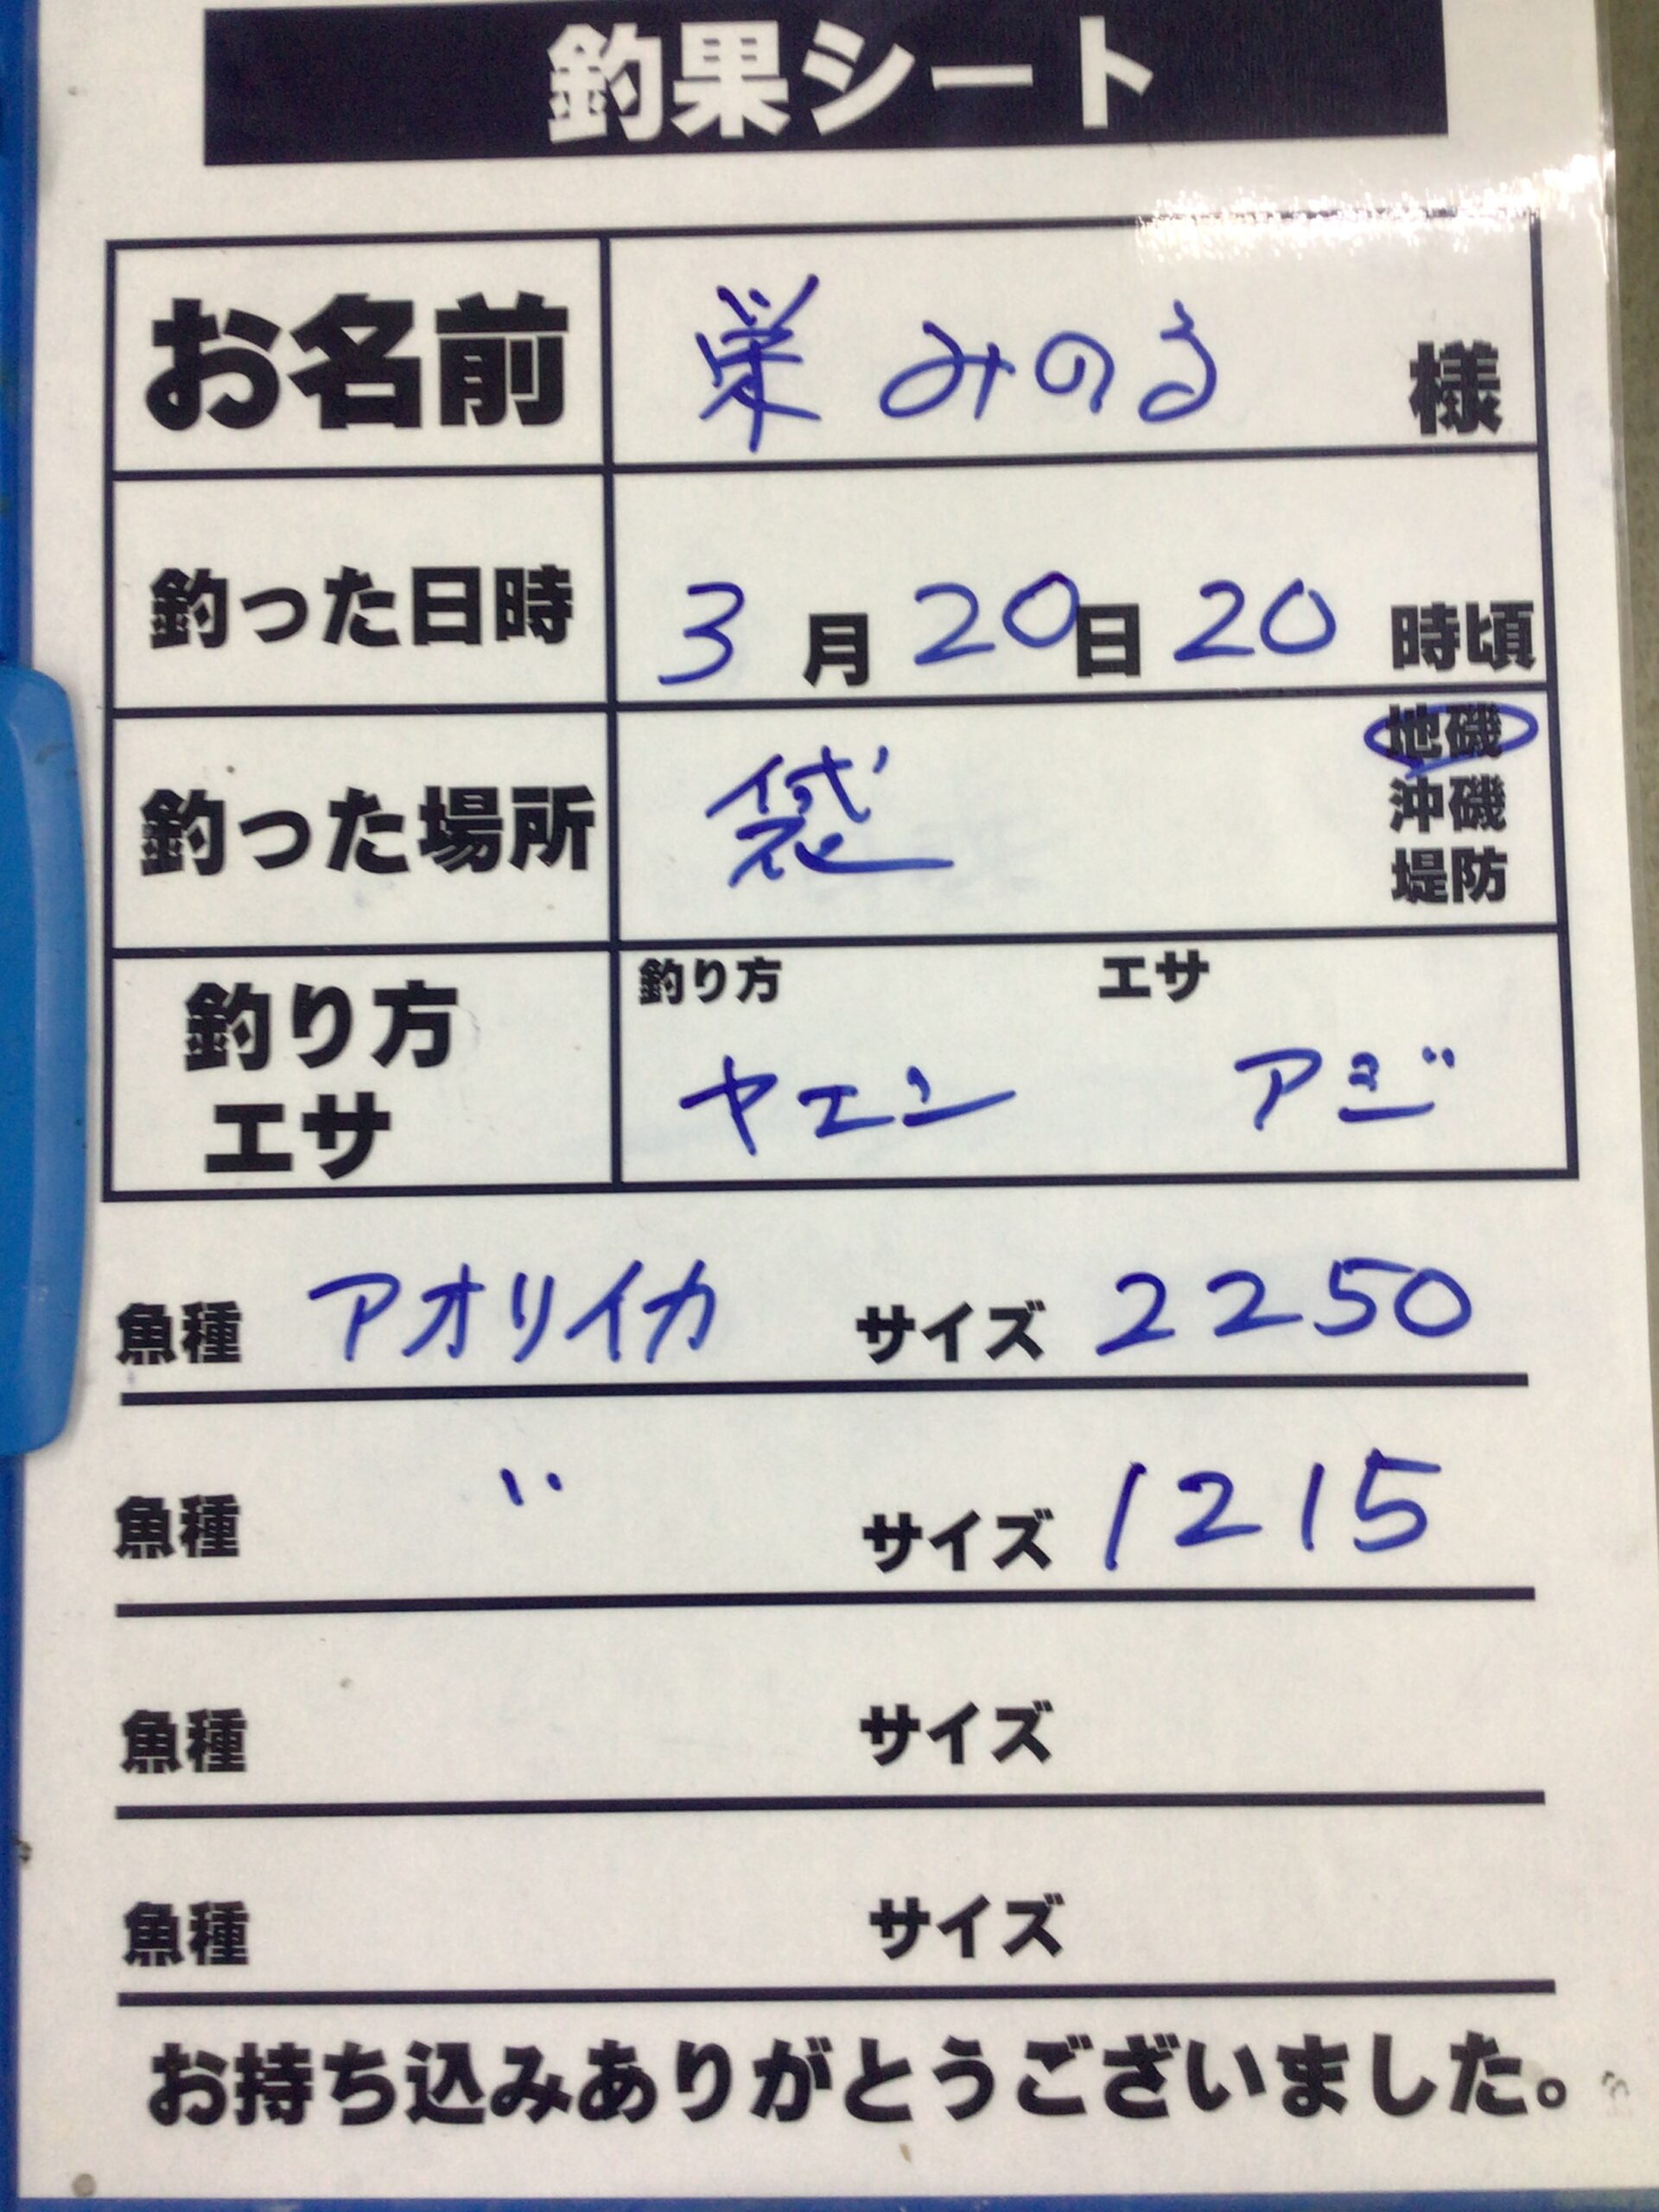 釣果シート
お名前 栄 みのる 様
釣った日時 3月20日20時頃
釣った場所 袋 地磯
沖磯
堤防
釣り方 エサ
釣り方 エサ
ヤエン アジ
魚種 アオリイカ サイズ 2250
魚種 〃 サイズ 1215
魚種 サイズ
魚種 サイズ
お持ち込みありがとうございました。